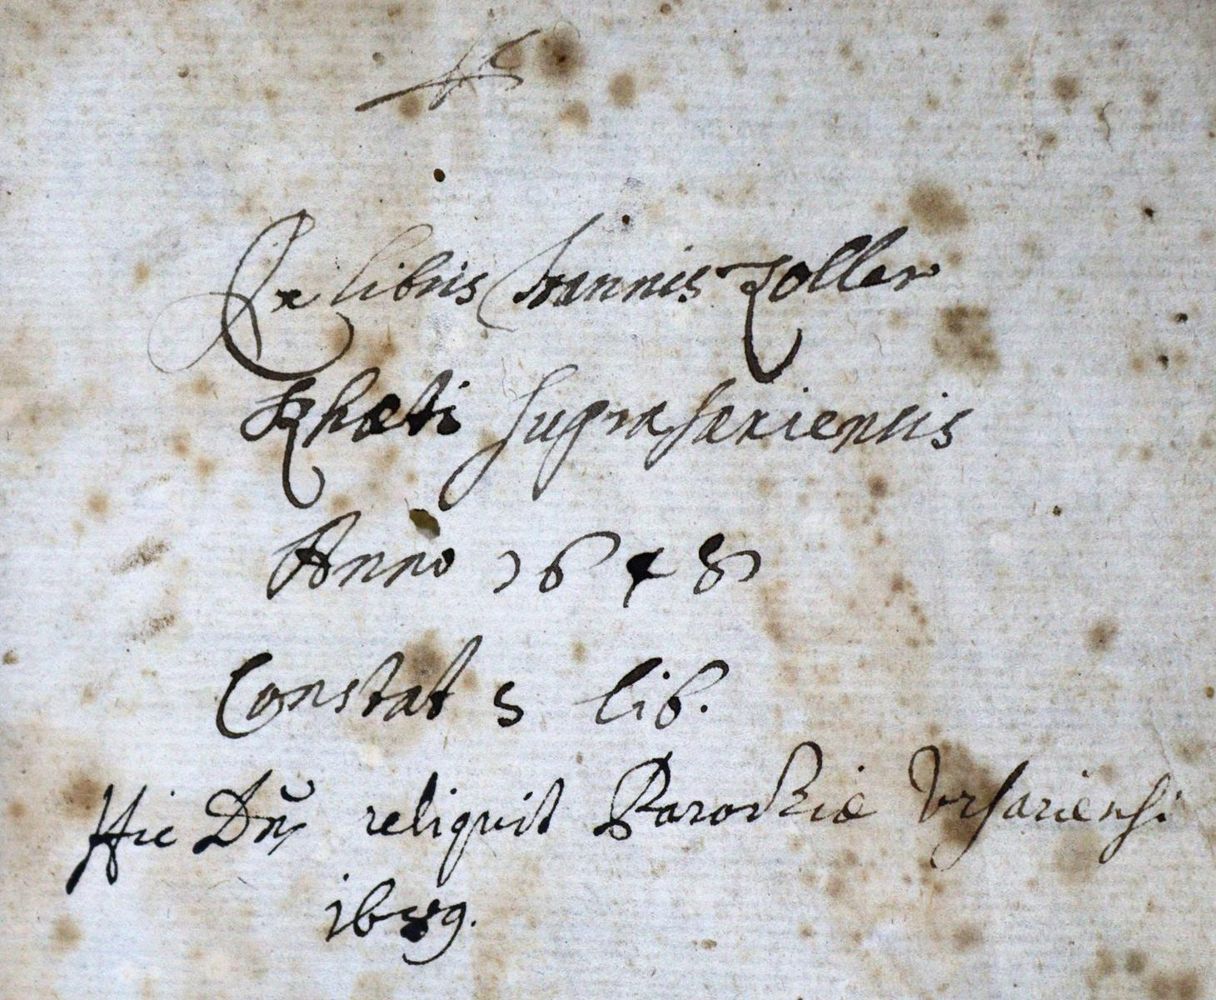 Ex libris Joannis Zoller
Rhæti supra saxiensis
Anno 1648
Constat 5 lib.
Hic Dn̄s reliquit Parochiæ Ursariensi
1689.